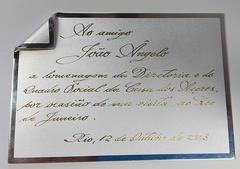 Ao amigo
João Ângelo
a homenagem da Diretoria e do
Quadro Social da Casa dos Açores,
por ocasião de sua visita ao Rio
de Janeiro.
Rio, 12 de Outubro de 2003